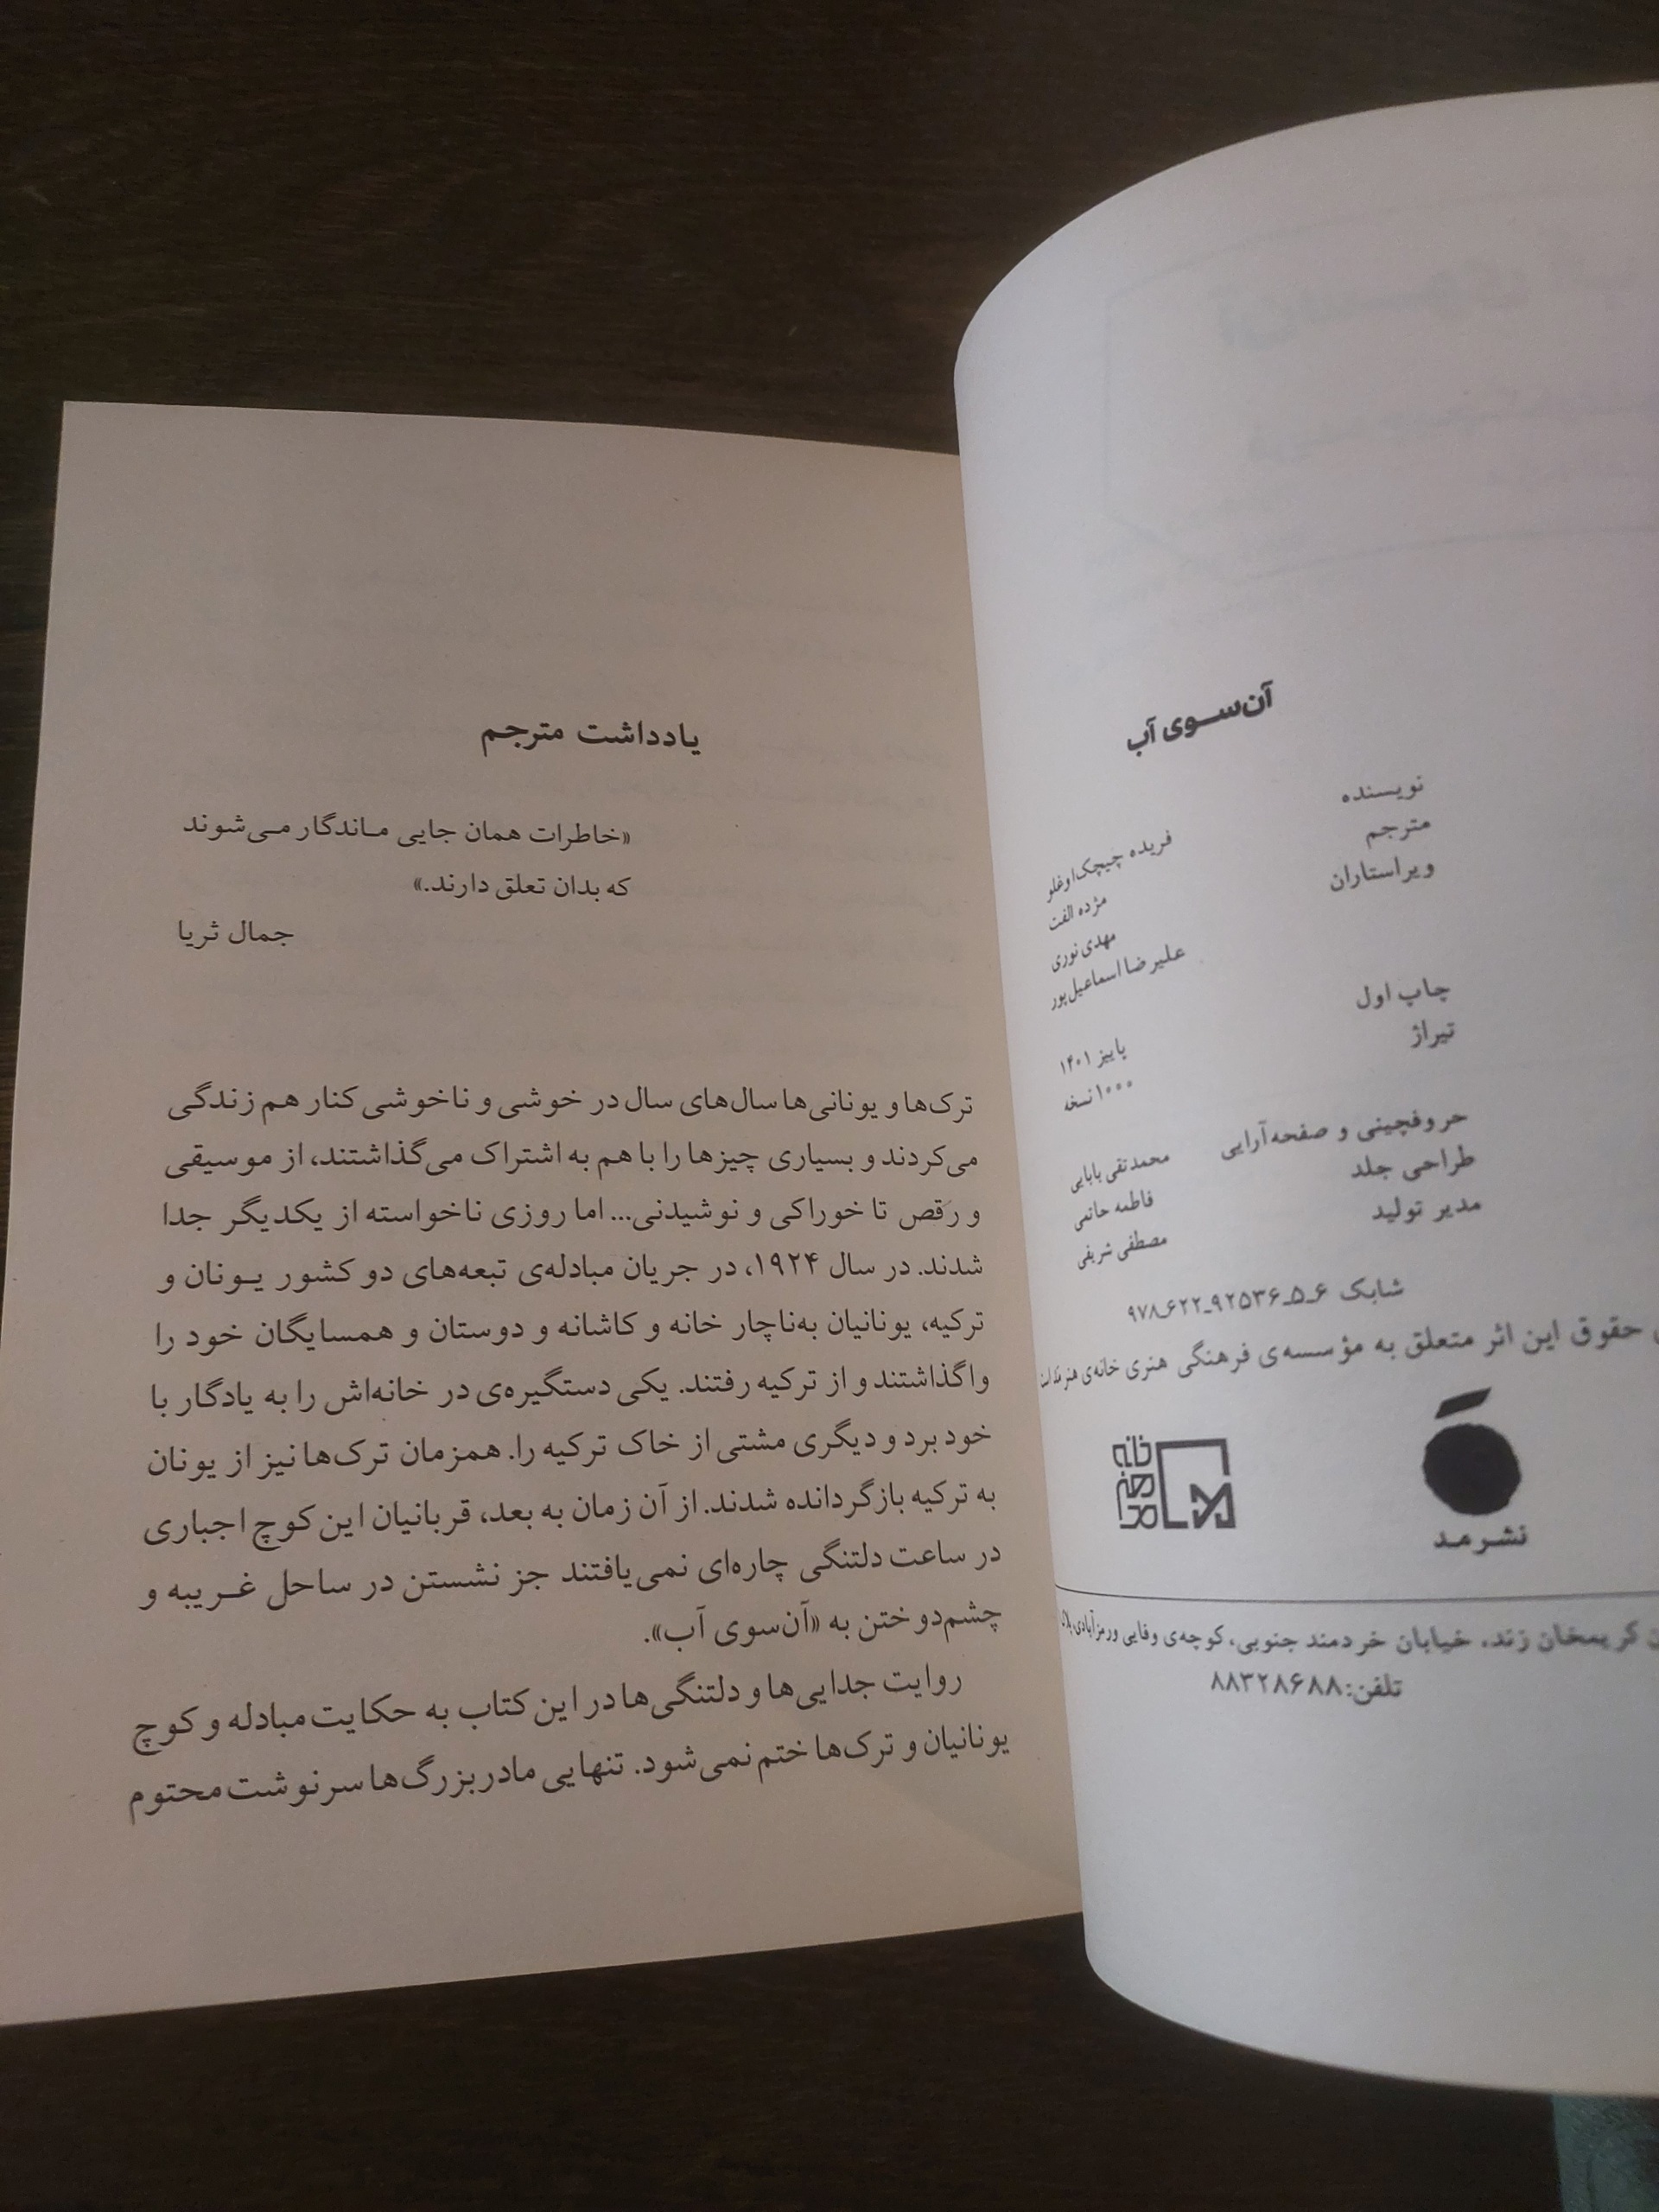 آن‌سوی آب
نویسنده فریده چیچک‌اوغلو
مترجم مژده الفت
ویراستاران مهدی نوری
علیرضا اسماعیل‌پور
چاپ اول پاییز ۱۴۰۱
تیراژ ۱۰۰۰ نسخه
حروفچینی و صفحه‌آرایی محمدتقی بابایی
طراحی جلد فاطمه حاتمی
مدیر تولید مصطفی شریفی
شابک ۶ـ۵ـ۹۲۵۳۶ـ۶۲۲ـ۹۷۸
حقوق این اثر متعلق به مؤسسه‌ی فرهنگی هنری خانه‌ی هنر مد است
خانه هنر مد
نشر مد
کریمخان زند، خیابان خردمند جنوبی، کوچه‌ی وفایی ورمزآبادی
تلفن: ۸۸۳۲۸۶۸۸
یادداشت مترجم
«خاطرات همان جایی ماندگار می‌شوند
که بدان تعلق دارند.»
جمال ثریا
ترک‌ها و یونانی‌ها سال‌های سال در خوشی و ناخوشی کنار هم زندگی
می‌کردند و بسیاری چیزها را با هم به اشتراک می‌گذاشتند، از موسیقی
و رَقص تا خوراکی و نوشیدنی... اما روزی ناخواسته از یکدیگر جدا
شدند. در سال ۱۹۲۴، در جریان مبادله‌ی تبعه‌های دو کشور یونان و
ترکیه، یونانیان به‌ناچار خانه و کاشانه و دوستان و همسایگان خود را
واگذاشتند و از ترکیه رفتند. یکی دستگیره‌ی در خانه‌اش را به یادگار با
خود برد و دیگری مشتی از خاک ترکیه را. همزمان ترک‌ها نیز از یونان
به ترکیه بازگردانده شدند. از آن زمان به بعد، قربانیان این کوچ اجباری
در ساعت دلتنگی چاره‌ای نمی‌یافتند جز نشستن در ساحل غریبه و
چشم‌دوختن به «آن‌سوی آب».
روایت جدایی‌ها و دلتنگی‌ها در این کتاب به حکایت مبادله و کوچ
یونانیان و ترک‌ها ختم نمی‌شود. تنهایی مادربزرگ‌ها سرنوشت محتوم